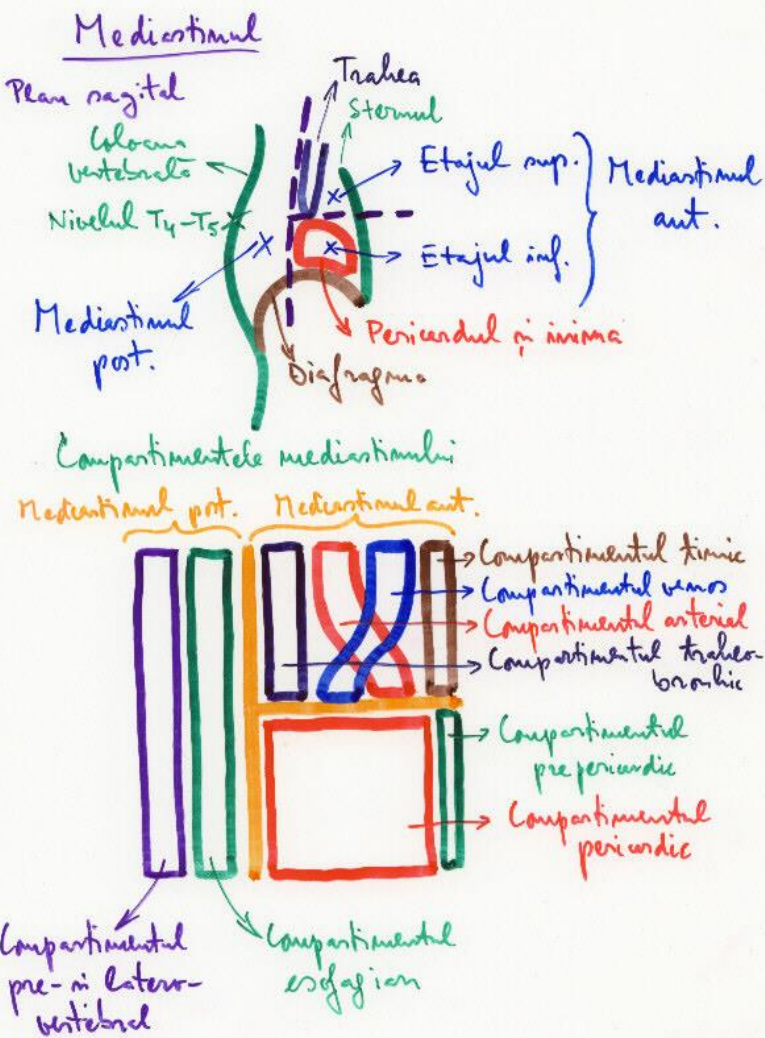 Mediastinul
Plan sagital
Trahea
Sternul
Coloana
vertebrală
Etajul sup.
Mediastinul
ant.
Nivelul T4-T5
Etajul inf.
Mediastinul
post.
Pericardul și inima
Diafragma
Compartimentele mediastinului
Mediastinul post.
Mediastinul ant.
Compartimentul timic
Compartimentul venos
Compartimentul arterial
Compartimentul traheo-
bronhic
Compartimentul
prepericardic
Compartimentul
pericardic
Compartimentul
pre- și latero-
vertebral
Compartimentul
esofagian